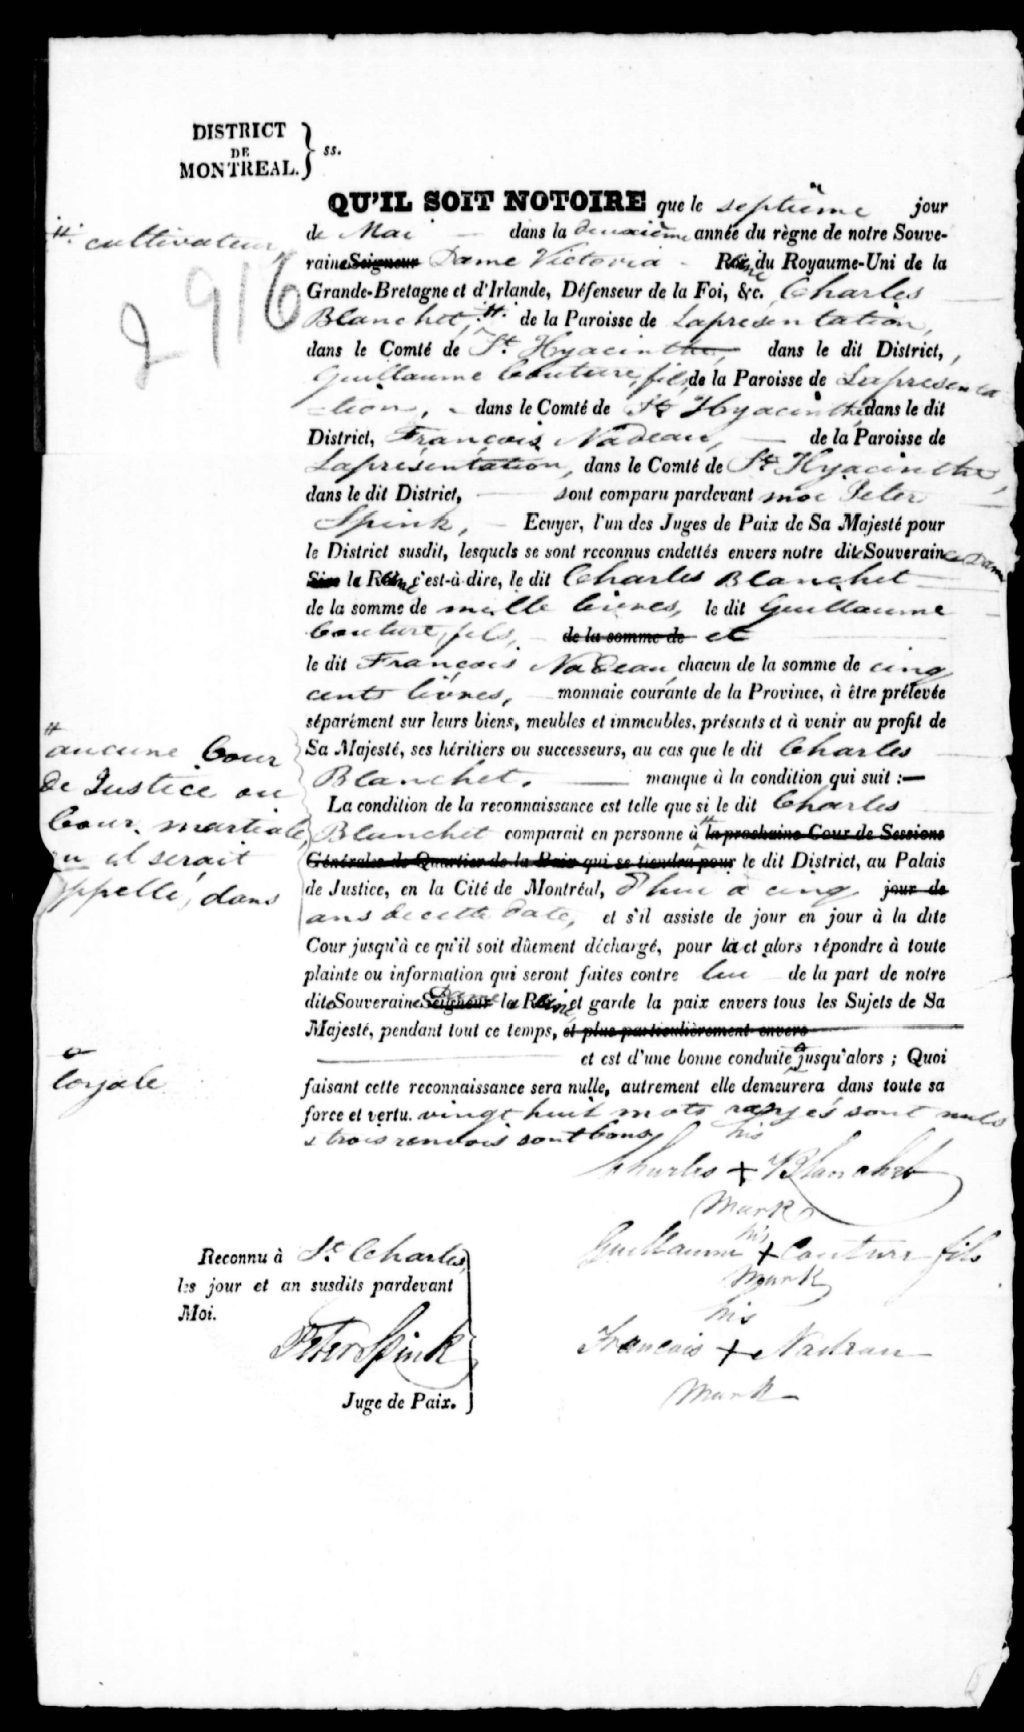 DISTRICT
DE
MONTREAL. } ss.
QU'IL SOIT NOTOIRE que le septième jour
de Mai dans la deuxième année du règne de notre Souve-
raine Seigneur Dame Victoria - Reine du Royaume-Uni de la
# cultivateur
2916
Grande-Bretagne et d'Irlande, Défenseur de la Foi, &c. Charles
Blanchet, # de la Paroisse de Lapresentation,
dans le Comté de St. Hyacinthe, dans le dit District,
Guillaume Couture, fils, de la Paroisse de Lapresenta
-tion, - dans le Comté de St Hyacinthe, dans le dit
District, François Nadeau, de la Paroisse de
Laprésentation, dans le Comté de St. Hyacinthe,
dans le dit District, sont comparu pardevant moi Peter
Spink, Ecuyer, l'un des Juges de Paix de Sa Majesté pour
le District susdit, lesquels se sont reconnus endettés envers notre dite Souveraine Dame
Sire la Reine c'est-à-dire, le dit Charles Blanchet
de la somme de mille livres, le dit Guillaume
Couture, fils, de la somme de et
le dit François Nadeau, chacun de la somme de cinq
cents livres, monnaie courante de la Province, à être prélevée
séparément sur leurs biens, meubles et immeubles, présents et à venir au profit de
Sa Majesté, ses héritiers ou successeurs, au cas que le dit Charles
Blanchet. manque à la condition qui suit :—
La condition de la reconnaissance est telle que si le dit Charles
Blanchet comparait en personne à # la prochaine Cour de Sessions
Générales de Quartier de la Paix qui se tiendra pour le dit District, au Palais
# aucune Cour
de Justice ou
Cour martiale,
qu il serait
appellé, dans
de Justice, en la Cité de Montréal, d'hui à cinq jour de
ans de cette date, et s'il assiste de jour en jour à la dite
Cour jusqu'à ce qu'il soit dûement déchargé, pour là et alors répondre à toute
plainte ou information qui seront faites contre lui de la part de notre
dite Souveraine Seigneur Dame la Reine, et garde la paix envers tous les Sujets de Sa
Majesté, pendant tout ce temps, et plus particulièrement envers
et est d'une bonne conduite jusqu'alors ; Quoi
loyale
faisant cette reconnaissance sera nulle, autrement elle demeurera dans toute sa
force et vertu. vingt huit mots rayés sont nuls
& trois renvois sont bons
his
Charles + Blanchet
mark
his
Guillaume + Couture fils
mark
his
Francois + Nadeau
mark
Reconnu à St. Charles,
les jour et an susdits pardevant
Moi.
Peter Spink
Juge de Paix.